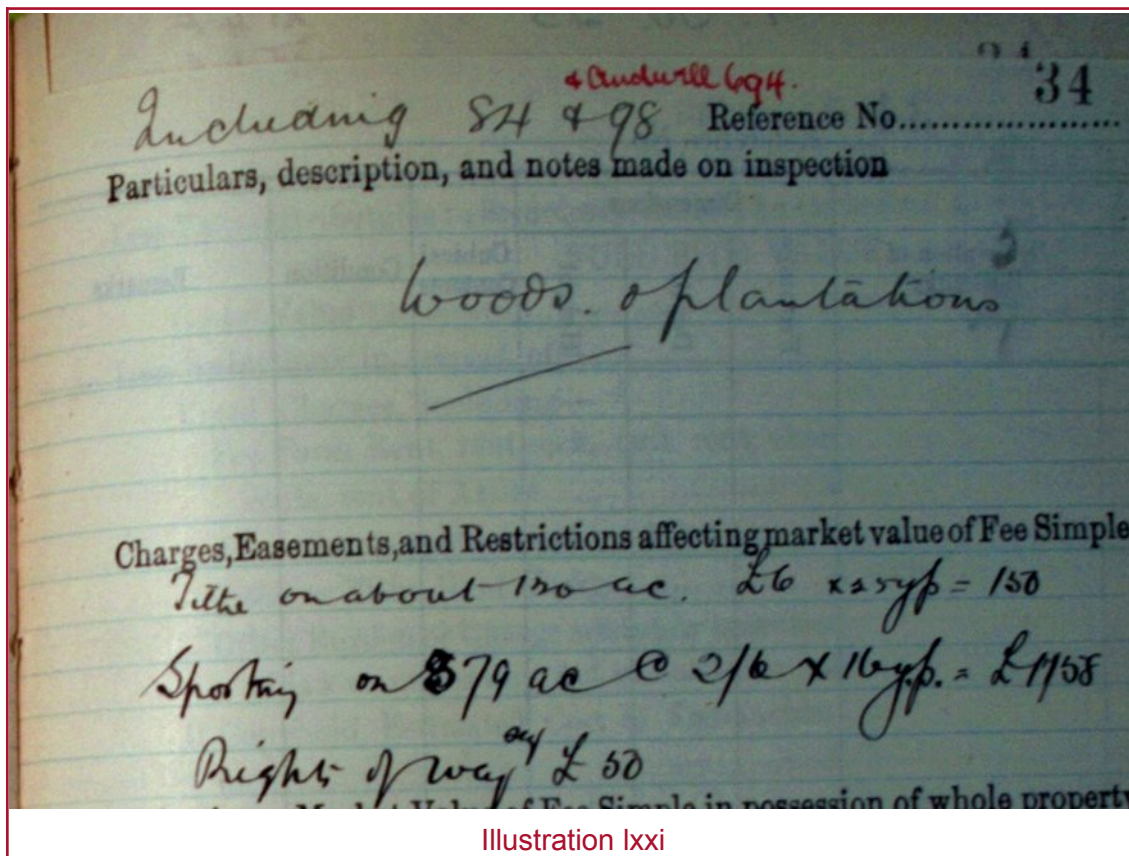 34
& Cudwell 694.
Including 84 & 98 Reference No......................
Particulars, description, and notes made on inspection
Woods. & plantations
Charges, Easements, and Restrictions affecting market value of Fee Simple
Tithe on about 120 ac. £6 x 25yp = 150
Sporting on 579 ac @ 2/6 x 16y.p. = £1158
Rights of way say £50
Market Value of Fee Simple in possession of whole property
Illustration lxxi